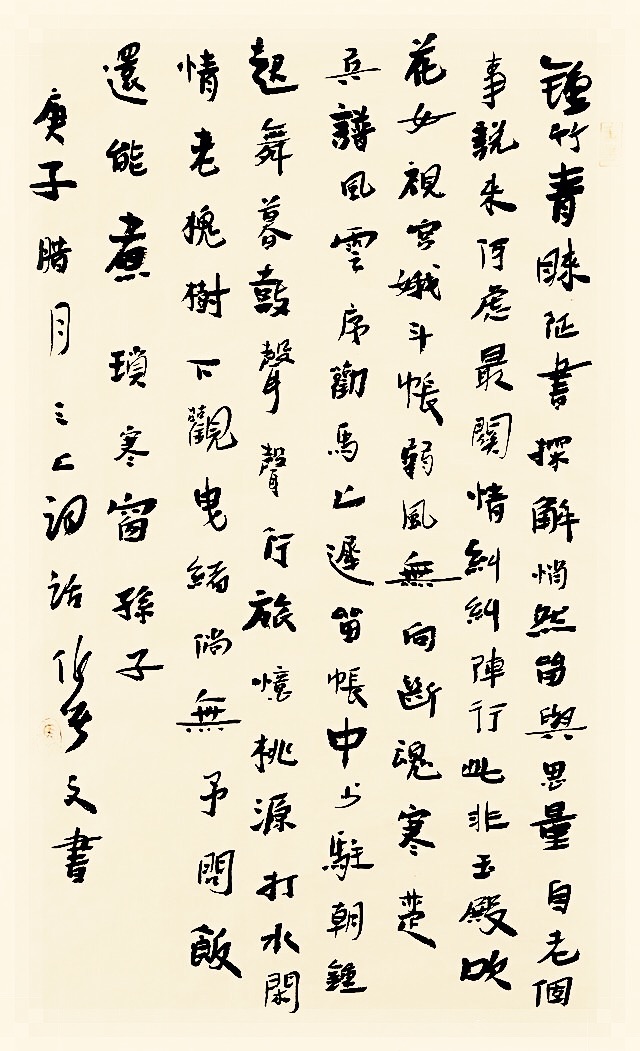 鍾竹青睞征書探解悄然留與思量自老個
事說來何處最關情糾糾陣行此非玉殿吹
花女視宮娥斗帳弱風無向斷魂寒楚
兵譜風雲序勸馬上遲留帳中少駐朝鍾
起舞暮鼓聲聲行旅憶桃源打水閑
情老槐樹下觀曳緒倘無予問飯
還能煮瑣寒窗孫子
庚子腊月之上詞話作文書